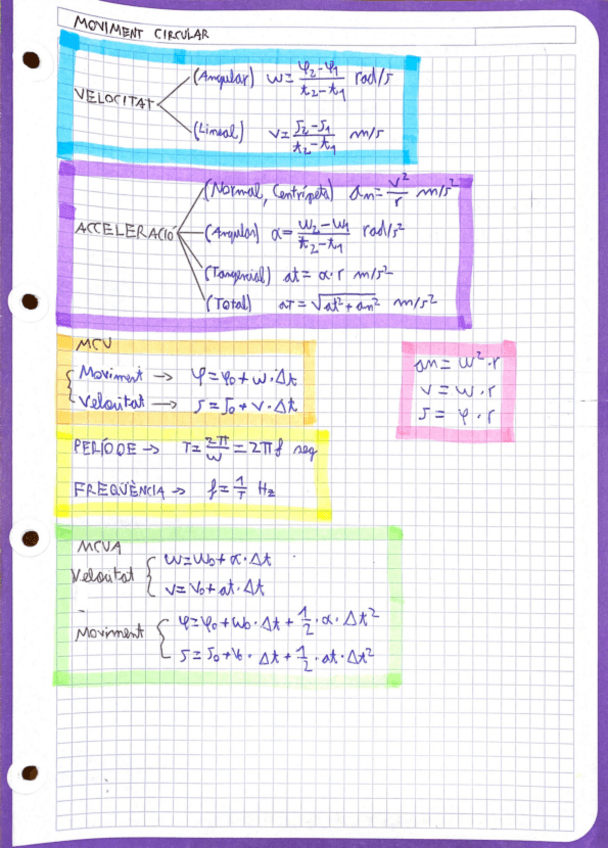 MOVIMENT CIRCULAR
VELOCITAT
(Angular) w = φ₂-φ₁ / t₂-t₁ rad/s
(Lineal) v = s₂-s₁ / t₂-t₁ m/s
ACCELERACIÓ
(Normal, Centrípeta) an = v² / r m/s²
(Angular) α = w₂-w₁ / t₂-t₁ rad/s²
(Tangencial) at = α·r m/s²
(Total) aT = √at²+an² m/s²
MCU
Moviment → φ = φ₀ + w·Δt
Velocitat → s = s₀ + v·Δt
an = w²·r
v = w·r
s = φ·r
PERÍODE → T = 2π / w = 2πf seg
FREQÜÈNCIA → f = 1 / T Hz
MCUA
Velocitat
w = w₀ + α·Δt
v = v₀ + at·Δt
Moviment
φ = φ₀ + w₀·Δt + 1/2·α·Δt²
s = s₀ + v₀·Δt + 1/2·at·Δt²